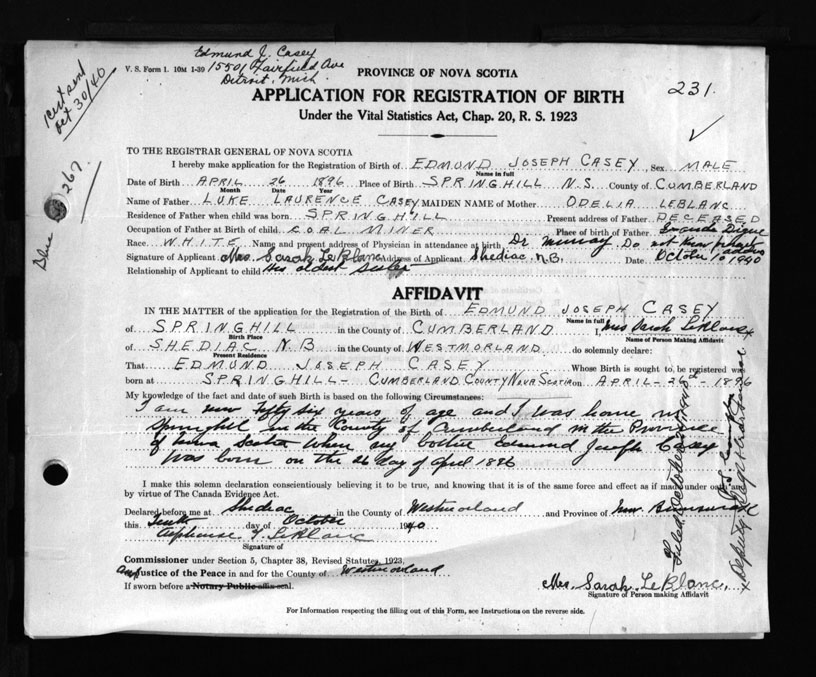 Edmund J. Casey
V. S. Form 1. 10M 1-39 15501 Fairfield Ave
Detroit, Mich.
Cert send
Oct 30/40
PROVINCE OF NOVA SCOTIA
231.
APPLICATION FOR REGISTRATION OF BIRTH
Under the Vital Statistics Act, Chap. 20, R. S. 1923
TO THE REGISTRAR GENERAL OF NOVA SCOTIA
I hereby make application for the Registration of Birth of EDMUND JOSEPH CASEY Sex MALE
Name in full
Date of Birth APRIL 26 1896 Place of Birth SPRINGHILL N.S. County of CUMBERLAND
Month Date Year
Name of Father LUKE LAURENCE CASEY MAIDEN NAME of Mother ODELIA LEBLANC
Residence of Father when child was born SPRINGHILL Present address of Father DECEASED
Occupation of Father at Birth of child COAL MINER Place of birth of Father Grande Digue
Race WHITE Name and present address of Physician in attendance at birth Dr. Murray Do not know present address
Signature of Applicant Mrs. Sarah LeBlanc Address of Applicant Shediac, N.B. Date October 10 1940
Relationship of Applicant to child His oldest sister
267.
AFFIDAVIT
IN THE MATTER of the application for the Registration of the Birth of EDMUND JOSEPH CASEY
Name in full
of SPRINGHILL in the County of CUMBERLAND I, Mrs Sarah LeBlanc
Birth Place Name of Person Making Affidavit
of SHEDIAC N.B in the County of WESTMORLAND do solemnly declare:
Present Residence
That EDMUND JOSEPH CASEY Whose Birth is sought to be registered was
born at SPRINGHILL - CUMBERLAND COUNTY NOVA SCOTIA on APRIL-26-1896
My knowledge of the fact and date of such Birth is based on the following Circumstances:
I am now fifty six years of age and I was home in
Springhill in the County of Cumberland in the Province
of Nova Scotia when my brother Edmund Joseph Casey
was born on the 26 day of April 1896
I make this solemn declaration conscientiously believing it to be true, and knowing that it is of the same force and effect as if made under oath and
by virtue of The Canada Evidence Act.
Declared before me at Shediac in the County of Westmorland and Province of New Brunswick
this Tenth day of October 1940
Alphonse LeBlanc
Signature of
Commissioner under Section 5, Chapter 38, Revised Statutes, 1923,
Justice of the Peace in and for the County of Westmorland
If sworn before a Notary Public affix seal.
Mrs. Sarah LeBlanc
Signature of Person making Affidavit
For Information respecting the filling out of this Form, see Instructions on the reverse side.
Filed October
Deputy Registrar General